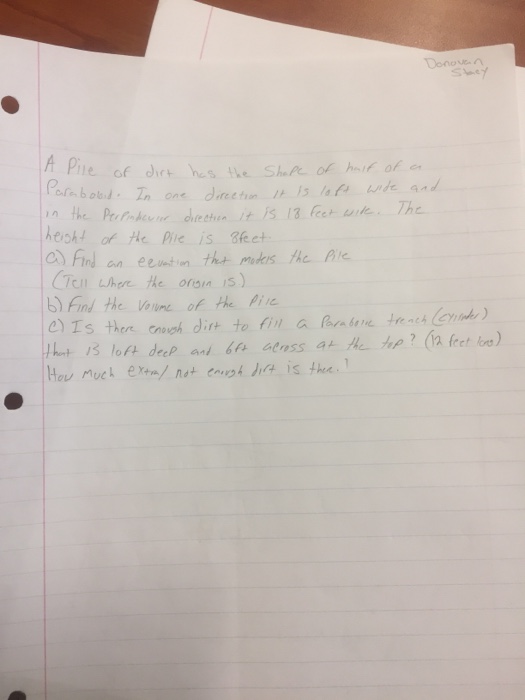 Donovan
A Pile of dirt has the Shape of half of a
Paraboloid. In one direction it is wide and
in the direction it is 18 feet wide. The
height of the Pile is 8feet
a) Find an equation that models the Pile
(Tell where the origin is)
b) Find the Volume of the Pile
c) Is there enough dirt to fill a Parabolic trench (cylinder)
that is 10ft deep and 6ft across at the top? (12 feet long)
How Much extra/ not enough dirt is there?